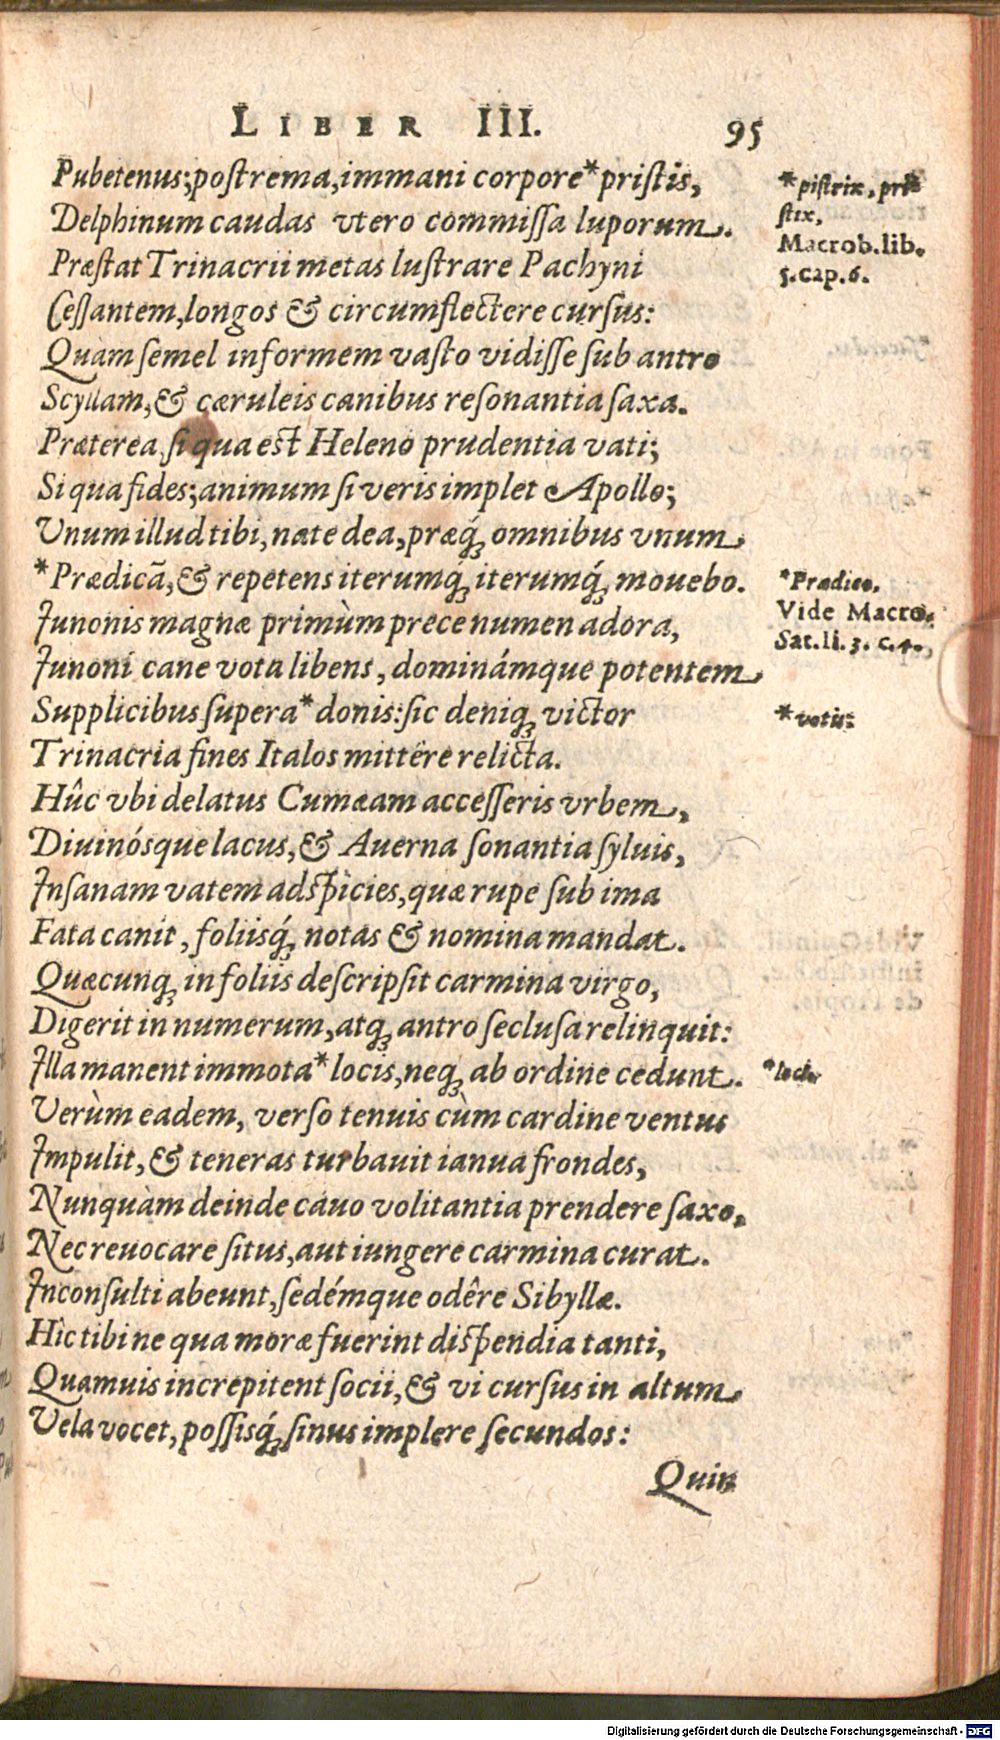 LIBER III. 95
Pubetenus; postrema, immani corpore * pristis,
Delphinum caudas vtero commissa luporum.
Præstat Trinacrii metas lustrare Pachyni
Cessantem, longos & circumflectere cursus:
Quàm semel informem vasto vidisse sub antro
Scyllam, & cæruleis canibus resonantia saxa.
Præterea si qua est Heleno prudentia vati;
Si qua fides; animum si veris implet Apollo;
Unum illud tibi, nate dea, præq́; omnibus vnum
* Prædicā, & repetens iterumq́; iterumq́; mouebo.
Junonis magnæ primùm prece numen adora,
Junoni cane vota libens, dominámque potentem
Supplicibus supera * donis: sic deniq; victor
Trinacria fines Italos mittêre relicta.
Hûc vbi delatus Cumæam accesseris vrbem,
Diuinósque lacus, & Auerna sonantia syluis,
Jnsanam vatem adspicies, quæ rupe sub ima
Fata canit, foliisq́; notas & nomina mandat.
Quæcunq; in foliis descripsit carmina virgo,
Digerit in numerum, atq; antro seclusa relinquit:
Jlla manent immota * locis, neq; ab ordine cedunt.
Verùm eadem, verso tenuis cùm cardine ventus
Jmpulit, & teneras turbauit ianua frondes,
Nunquàm deinde cauo volitantia prendere saxo,
Nec reuocare situs, aut iungere carmina curat.
Jnconsulti abeunt, sedémque odêre Sibyllæ.
Hìc tibi ne qua moræ fuerint dispendia tanti,
Quamuis increpitent socii, & vi cursus in altum
Vela vocet, possisq́; sinus implere secundos:
Quin
* pistrix, pri-
stix,
Macrob. lib.
5. cap. 6.
* Prædico.
Vide Macro.
Sat. li. 3. c. 4.
* votis:
* loco
Digitalisierung gefördert durch die Deutsche Forschungsgemeinschaft - DFG